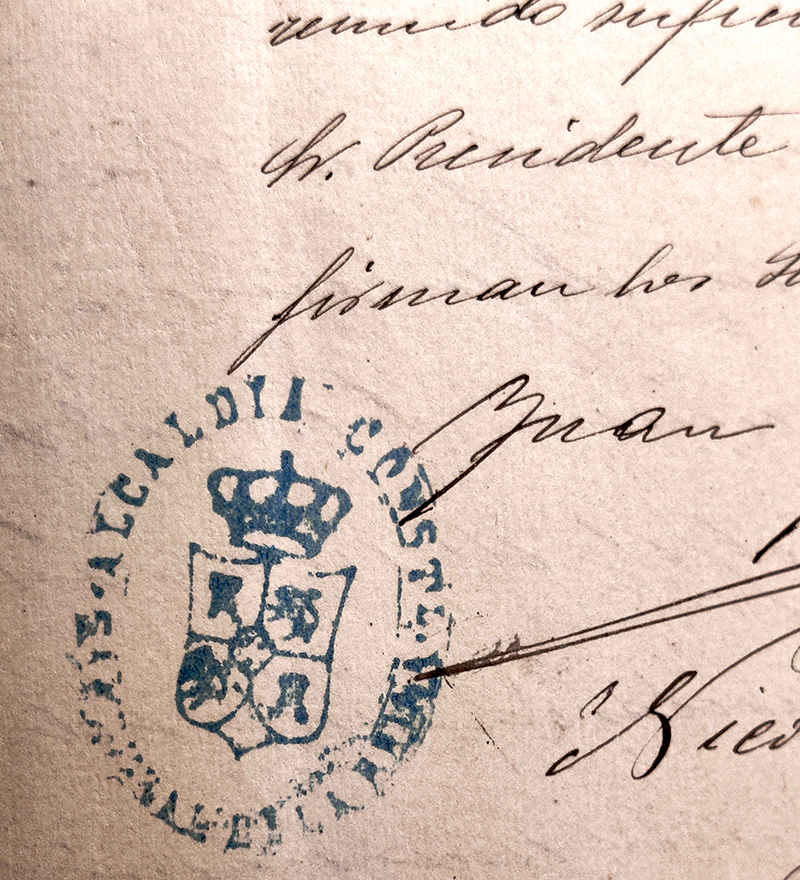 reunido sufici
Sr. Presidente
firman los S
Juan
Nico
ALCALDIA CONSTL.